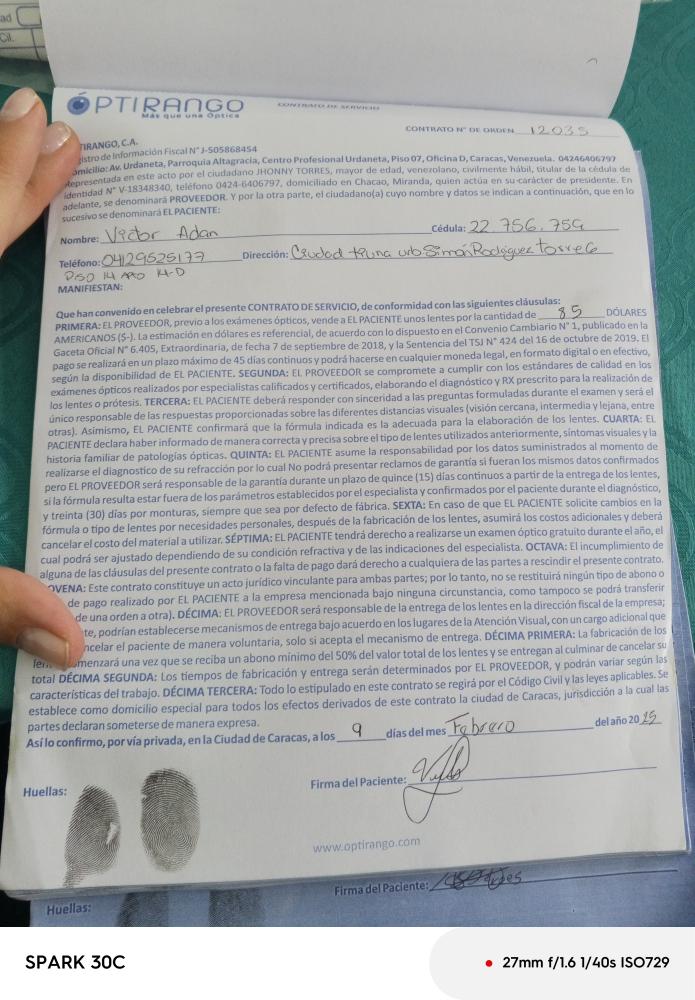 ad
Cil.
ÓPTIRANGO
Más que una Óptica
CONTRATO DE SERVICIO
CONTRATO N° DE ORDEN 12035
TIRANGO, C.A.
istro de Información Fiscal N° J-505868454
omicilio: Av. Urdaneta, Parroquia Altagracia, Centro Profesional Urdaneta, Piso 07, Oficina D, Caracas, Venezuela. 04246406797
Representada en este acto por el ciudadano JHONNY TORRES, mayor de edad, venezolano, civilmente hábil, titular de la cédula de
identidad N° V-18348340, teléfono 0424-6406797, domiciliado en Chacao, Miranda, quien actúa en su carácter de presidente. En
adelante, se denominará PROVEEDOR. Y por la otra parte, el ciudadano(a) cuyo nombre y datos se indican a continuación, que en lo
sucesivo se denominará EL PACIENTE:
Nombre: Victor Adan Cédula: 22.756.759
Teléfono: 04129525177 Dirección: Ciudad tiuna urb Simón Rodríguez torre 6
Piso 14 Apto 14-D
MANIFIESTAN:
Que han convenido en celebrar el presente CONTRATO DE SERVICIO, de conformidad con las siguientes cláusulas:
PRIMERA: EL PROVEEDOR, previo a los exámenes ópticos, vende a EL PACIENTE unos lentes por la cantidad de 85 DÓLARES
AMERICANOS ($-). La estimación en dólares es referencial, de acuerdo con lo dispuesto en el Convenio Cambiario N° 1, publicado en la
Gaceta Oficial N° 6.405, Extraordinaria, de fecha 7 de septiembre de 2018, y la Sentencia del TSJ N° 424 del 16 de octubre de 2019. El
pago se realizará en un plazo máximo de 45 días continuos y podrá hacerse en cualquier moneda legal, en formato digital o en efectivo,
según la disponibilidad de EL PACIENTE. SEGUNDA: EL PROVEEDOR se compromete a cumplir con los estándares de calidad en los
exámenes ópticos realizados por especialistas calificados y certificados, elaborando el diagnóstico y RX prescrito para la realización de
los lentes o prótesis. TERCERA: EL PACIENTE deberá responder con sinceridad a las preguntas formuladas durante el examen y será el
único responsable de las respuestas proporcionadas sobre las diferentes distancias visuales (visión cercana, intermedia y lejana, entre
otras). Asimismo, EL PACIENTE confirmará que la fórmula indicada es la adecuada para la elaboración de los lentes. CUARTA: EL
PACIENTE declara haber informado de manera correcta y precisa sobre el tipo de lentes utilizados anteriormente, síntomas visuales y la
historia familiar de patologías ópticas. QUINTA: EL PACIENTE asume la responsabilidad por los datos suministrados al momento de
realizarse el diagnostico de su refracción por lo cual No podrá presentar reclamos de garantía si fueran los mismos datos confirmados
pero EL PROVEEDOR será responsable de la garantía durante un plazo de quince (15) días continuos a partir de la entrega de los lentes,
si la fórmula resulta estar fuera de los parámetros establecidos por el especialista y confirmados por el paciente durante el diagnóstico,
y treinta (30) días por monturas, siempre que sea por defecto de fábrica. SEXTA: En caso de que EL PACIENTE solicite cambios en la
fórmula o tipo de lentes por necesidades personales, después de la fabricación de los lentes, asumirá los costos adicionales y deberá
cancelar el costo del material a utilizar. SÉPTIMA: EL PACIENTE tendrá derecho a realizarse un examen óptico gratuito durante el año, el
cual podrá ser ajustado dependiendo de su condición refractiva y de las indicaciones del especialista. OCTAVA: El incumplimiento de
alguna de las cláusulas del presente contrato o la falta de pago dará derecho a cualquiera de las partes a rescindir el presente contrato.
OVENA: Este contrato constituye un acto jurídico vinculante para ambas partes; por lo tanto, no se restituirá ningún tipo de abono o
de pago realizado por EL PACIENTE a la empresa mencionada bajo ninguna circunstancia, como tampoco se podrá transferir
de una orden a otra). DÉCIMA: EL PROVEEDOR será responsable de la entrega de los lentes en la dirección fiscal de la empresa;
te, podrían establecerse mecanismos de entrega bajo acuerdo en los lugares de la Atención Visual, con un cargo adicional que
ncelar el paciente de manera voluntaria, solo si acepta el mecanismo de entrega. DÉCIMA PRIMERA: La fabricación de los
len menzará una vez que se reciba un abono mínimo del 50% del valor total de los lentes y se entregan al culminar de cancelar su
total DÉCIMA SEGUNDA: Los tiempos de fabricación y entrega serán determinados por EL PROVEEDOR, y podrán variar según las
características del trabajo. DÉCIMA TERCERA: Todo lo estipulado en este contrato se regirá por el Código Civil y las leyes aplicables. Se
establece como domicilio especial para todos los efectos derivados de este contrato la ciudad de Caracas, jurisdicción a la cual las
partes declaran someterse de manera expresa.
Así lo confirmo, por vía privada, en la Ciudad de Caracas, a los 9 días del mes Febrero del año 2025
Huellas:
Firma del Paciente:
www.optirango.com
Firma del Paciente:
Huellas:
SPARK 30C
27mm f/1.6 1/40s ISO729